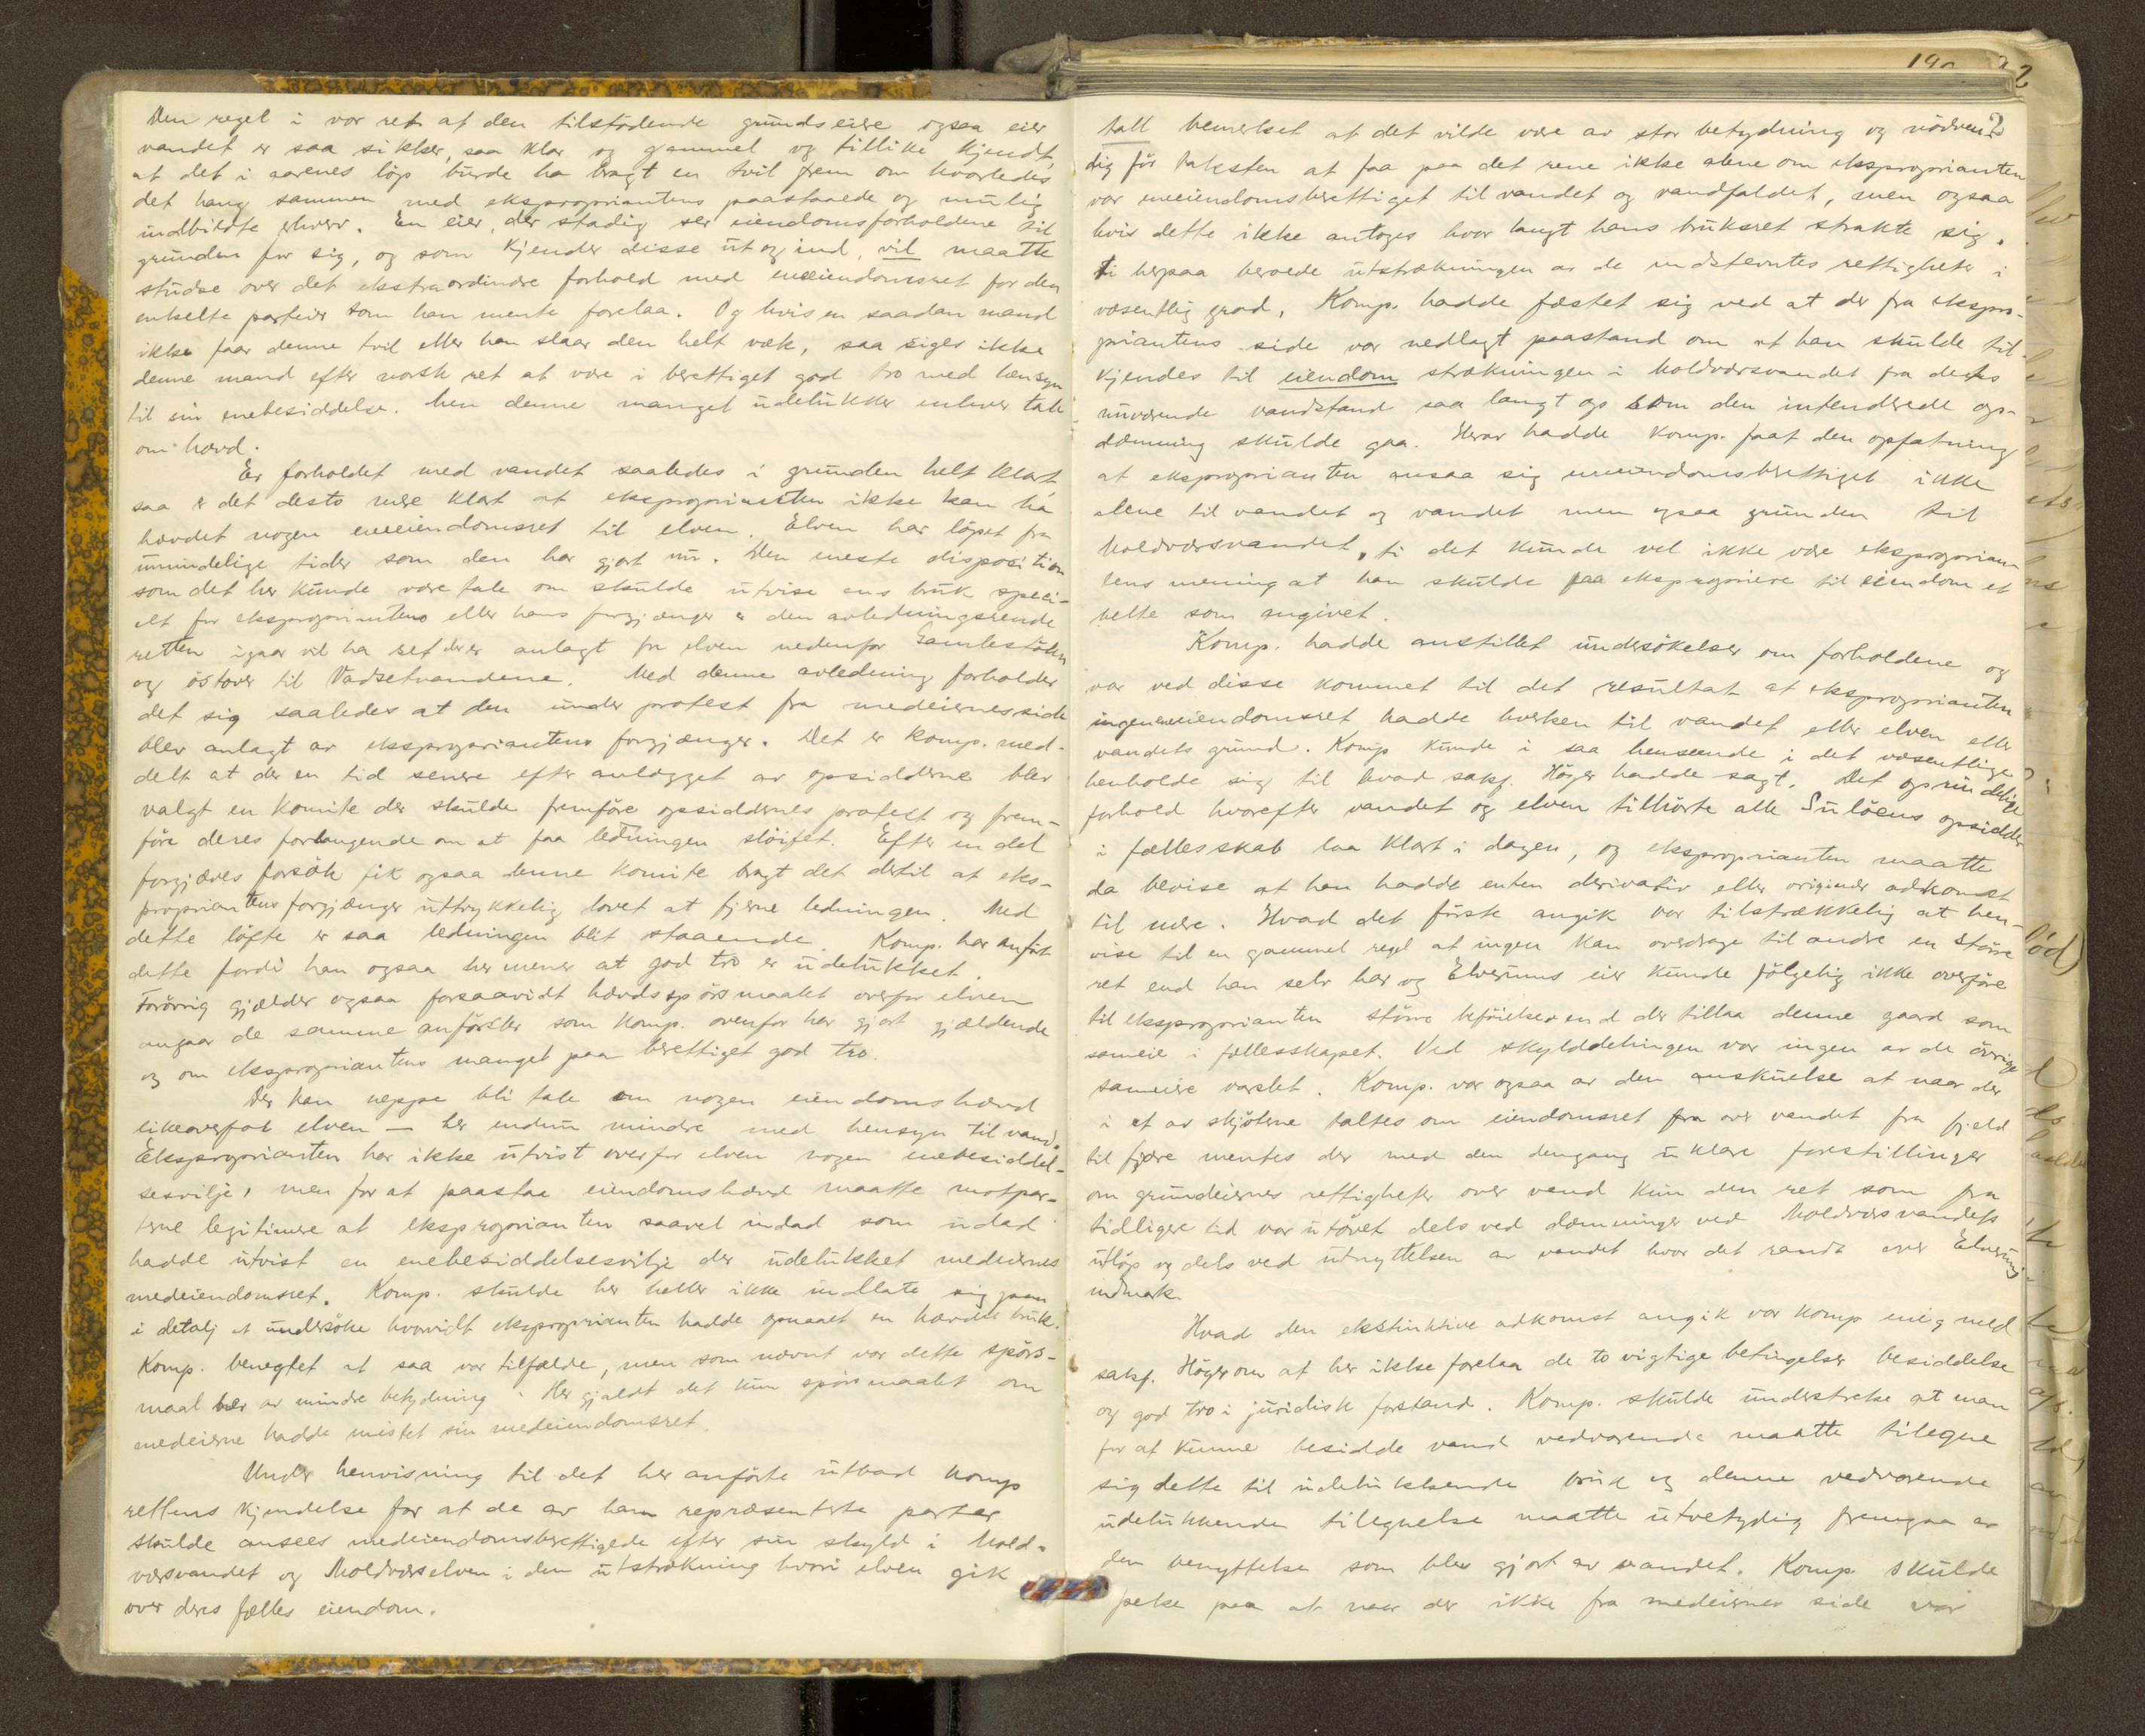 Den regel i vor ret at den tilstødende grundseier ogsaa eier
vandet er saa sikker, saa klar og gammel og tillike kjendt,
at det i aarenes löp burde ha bragt en tvil frem om hvorledes
det hang sammen med eksproprianten paastaaede og mulig
indbildte erhverv. En eier, der stadig ser eiendomsforholdene til
grunden for sig, og som kjender disse ut og ind, vil maatte
studse over det ekstraordinære forhold med eneeiendomsret for den
enkelte parteier som han mente forelaa. Og hvis en saadan mand
ikke faar denne tvil eller han slaar den helt væk, saa siges ikke
denne mand efter norsk ret at være i berettiget god tro med hensyn
til sin enebesiddelse. Men denne mangel udelukker enhver tale
om hævd.
Er forholdet med vandet saaledes i grunden helt klart
saa er det desto mere klart at eksproprianten ikke kan ha
hævdet nogen eneeiendomsret til elven. Elven har löpet fra
umindelige tider som den har gjort nu. Den eneste disposition
som det her kunde være tale om skulde utvise ens bruk speci-
elt for eksproprianten eller hans forgjænger er den avledningsrende
retten igaar vil ha set der er anlagt fra elven nedenfor Gamlestöden
og östover til Vadsetvandene. Med denne avledning forholder
det sig saaledes at den under protest fra medeiernes side
blev anlagt av eksproprianten forgjænger. Det er komp. med-
delt at der en tid senere efter anlægget av opsidderne blev
valgt en komite der skulde fremföre opsiddernes protest og frem-
före deres forlangende om at faa ledningen slöifet. Efter en del
forgjæves forsök fik ogsaa denne komite bragt det dertil at eks-
propriantens forgjænger uttrykkelig lovet at fjerne ledningen. Med
dette löfte er saa ledningen blit staaende. Komp. har anfört
dette fordi han ogsaa her mener at god tro er udelukket.
Forövrig gjælder ogsaa forsaavidt hævdsspörsmaalet overfor elven
angaar de samme anförsler som komp. ovenfor har gjort gjældende
og om eksproprantens mangel paa berettiget god tro.
Der kan neppe bli tale om nogen eiendomshævd
likeoverfor elven — her endnu mindre med hensyn til vand.
Eksproprianten har ikke utvist overfor elven nogen enebesiddel-
sesvilje, men for at paastaa eiendomshævd maatte motpar-
terne legitimere at eksproprianten saavel indad som udad
hadde utvist en enebesiddelsesvilje der udelukket medeiernes
medeiendomsret. Komp. skulde her heller ikke indlate sig paa
i detalj at undersöke hvorvidt eksproprianten hadde opnaaet en hævdet bruk.
Komp. benegtet at saa var tilfælde, men som nævnt var dette spörs-
maal her av mindre betydning. Her gjaldt det kun spörsmaalet om
medeierne hadde mistet sin medeiendomsret.
Under henvisning til det her anförte utbad komp
rettens kjendelse for at de av ham repræsenterte parter
skulde ansees medeiendomsberettigede efter sin skyld i Mold-
værsvandet og Moldværselven i den utstrækning hvori elven gik
over deres fælles eiendom.
2
tall bemerket at det vilde være av stor betydning og nödven-
dig för taksten at faa paa det rene ikke alene om eksproprianten
var eneeiendomsberettiget til vandet og vandfaldet, men ogsaa
hvis dette ikke antoges hvor langt hans bruksret strakte sig.
Ti herpaa beroede utstrækningen av de indstevntes rettigheter i
væsentlig grad. Komp. hadde fæstet sig ved at der fra ekspro-
priantens side var nedlagt paastand om at han skulde til-
kjendes til eiendom strækningen i Moldværsvandet fra dets
nuværende vandstand saa langt op som den intenderede op-
dæmning skulde gaa. Herav hadde komp. faat den opfatning
at eksproprianten ansaa sig eneeiendomsberettiget ikke
alene til vandet og vandet men ogsaa grunden til
Moldværsvandet, ti det kunde vel ikke være eksproprian-
tens mening at han skulde faa ekspropriere til eiendom et
belte som angivet.
Komp. hadde anstillet undersökelser om forholdene og
var ved disse kommet til det resultat at eksproprianten
ingen eneeiendomsret hadde hverken til vandet eller elven eller
vandets grund. Komp kunde i saa henseende i det væsentlige
henholde sig til hvad sakf. Höger hadde sagt. Det oprindelige
forhold hvorefter vandet og elven tilhörte alle Sulöens opsiddere
i fællesskab laa klart i dagen, og eksproprianten maatte
da bevise at han hadde enten derivativ eller originær adkomst
til mere. Hvad det förste angik var tilstrækkelig at hen-
vise til en gammel regel at ingen kan overdrage til andre en större
ret end han selv har og Elverums eier kunde fölgelig ikke overföre
til eksproprianten större beföielser end der tillaa denne gaard som
sameie i fællesskapet. Ved skylddelingen var ingen av de övrige
sameiere varslet. Komp. var ogsaa av den anskuelse at naar der
i et av skjöterne taltes om eiendomsret fra over vandet fra fjeld
til fjære mentes der med den dengang uklare forestillinger
om grundeiernes rettigheter over vand kun den ret som fra
tidligere tid var utövet dels ved dæmninger ved Moldværsvandets
utlöp og dels ved utnyttelsen av vandet hvor det randt over Elverums
indmark.
Hvad den ekstinktive adkomst angik var komp enig med
sakf. Höger om at her ikke forelaa de to vigtige betingelser besiddelse
og god tro i juridisk forstand. Komp. skulde understreke at man
for at kunne besidde vand vedvarende maatte tilegne
sig dette til udelukkende bruk og denne vedvarende
udelukkende tilegnelse maatte utvetydig fremgaa av
den benyttelse som blev gjort av vandet. Komp. skulde
peke paa at naar der ikke fra medeiernes side var